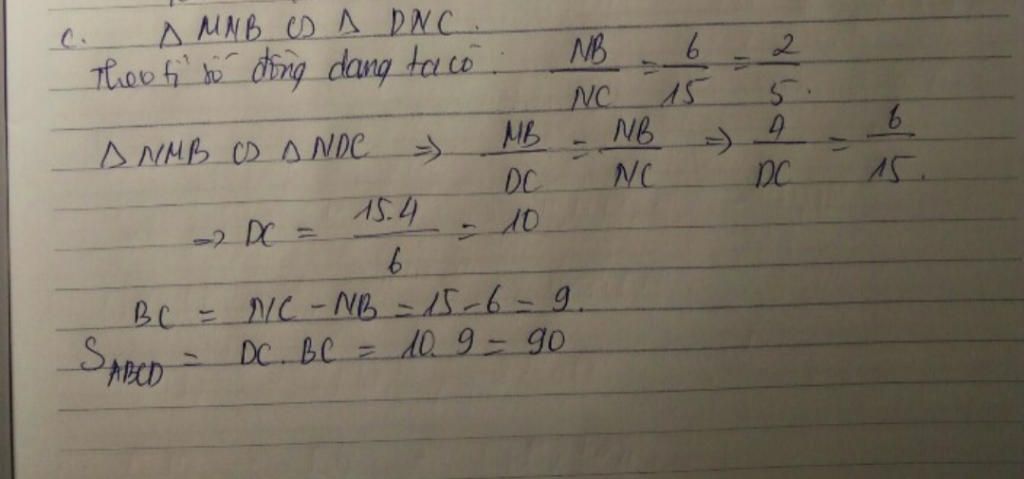 c. Δ MNB ∽ Δ DNC.
Theo tỉ số đồng dạng ta có: NB/NC = 6/15 = 2/5.
Δ NMB ∽ Δ NDC => MB/DC = NB/NC => 4/DC = 6/15.
=> DC = 15.4/6 = 10
BC = NC - NB = 15 - 6 = 9.
S_ABCD = DC. BC = 10. 9 = 90